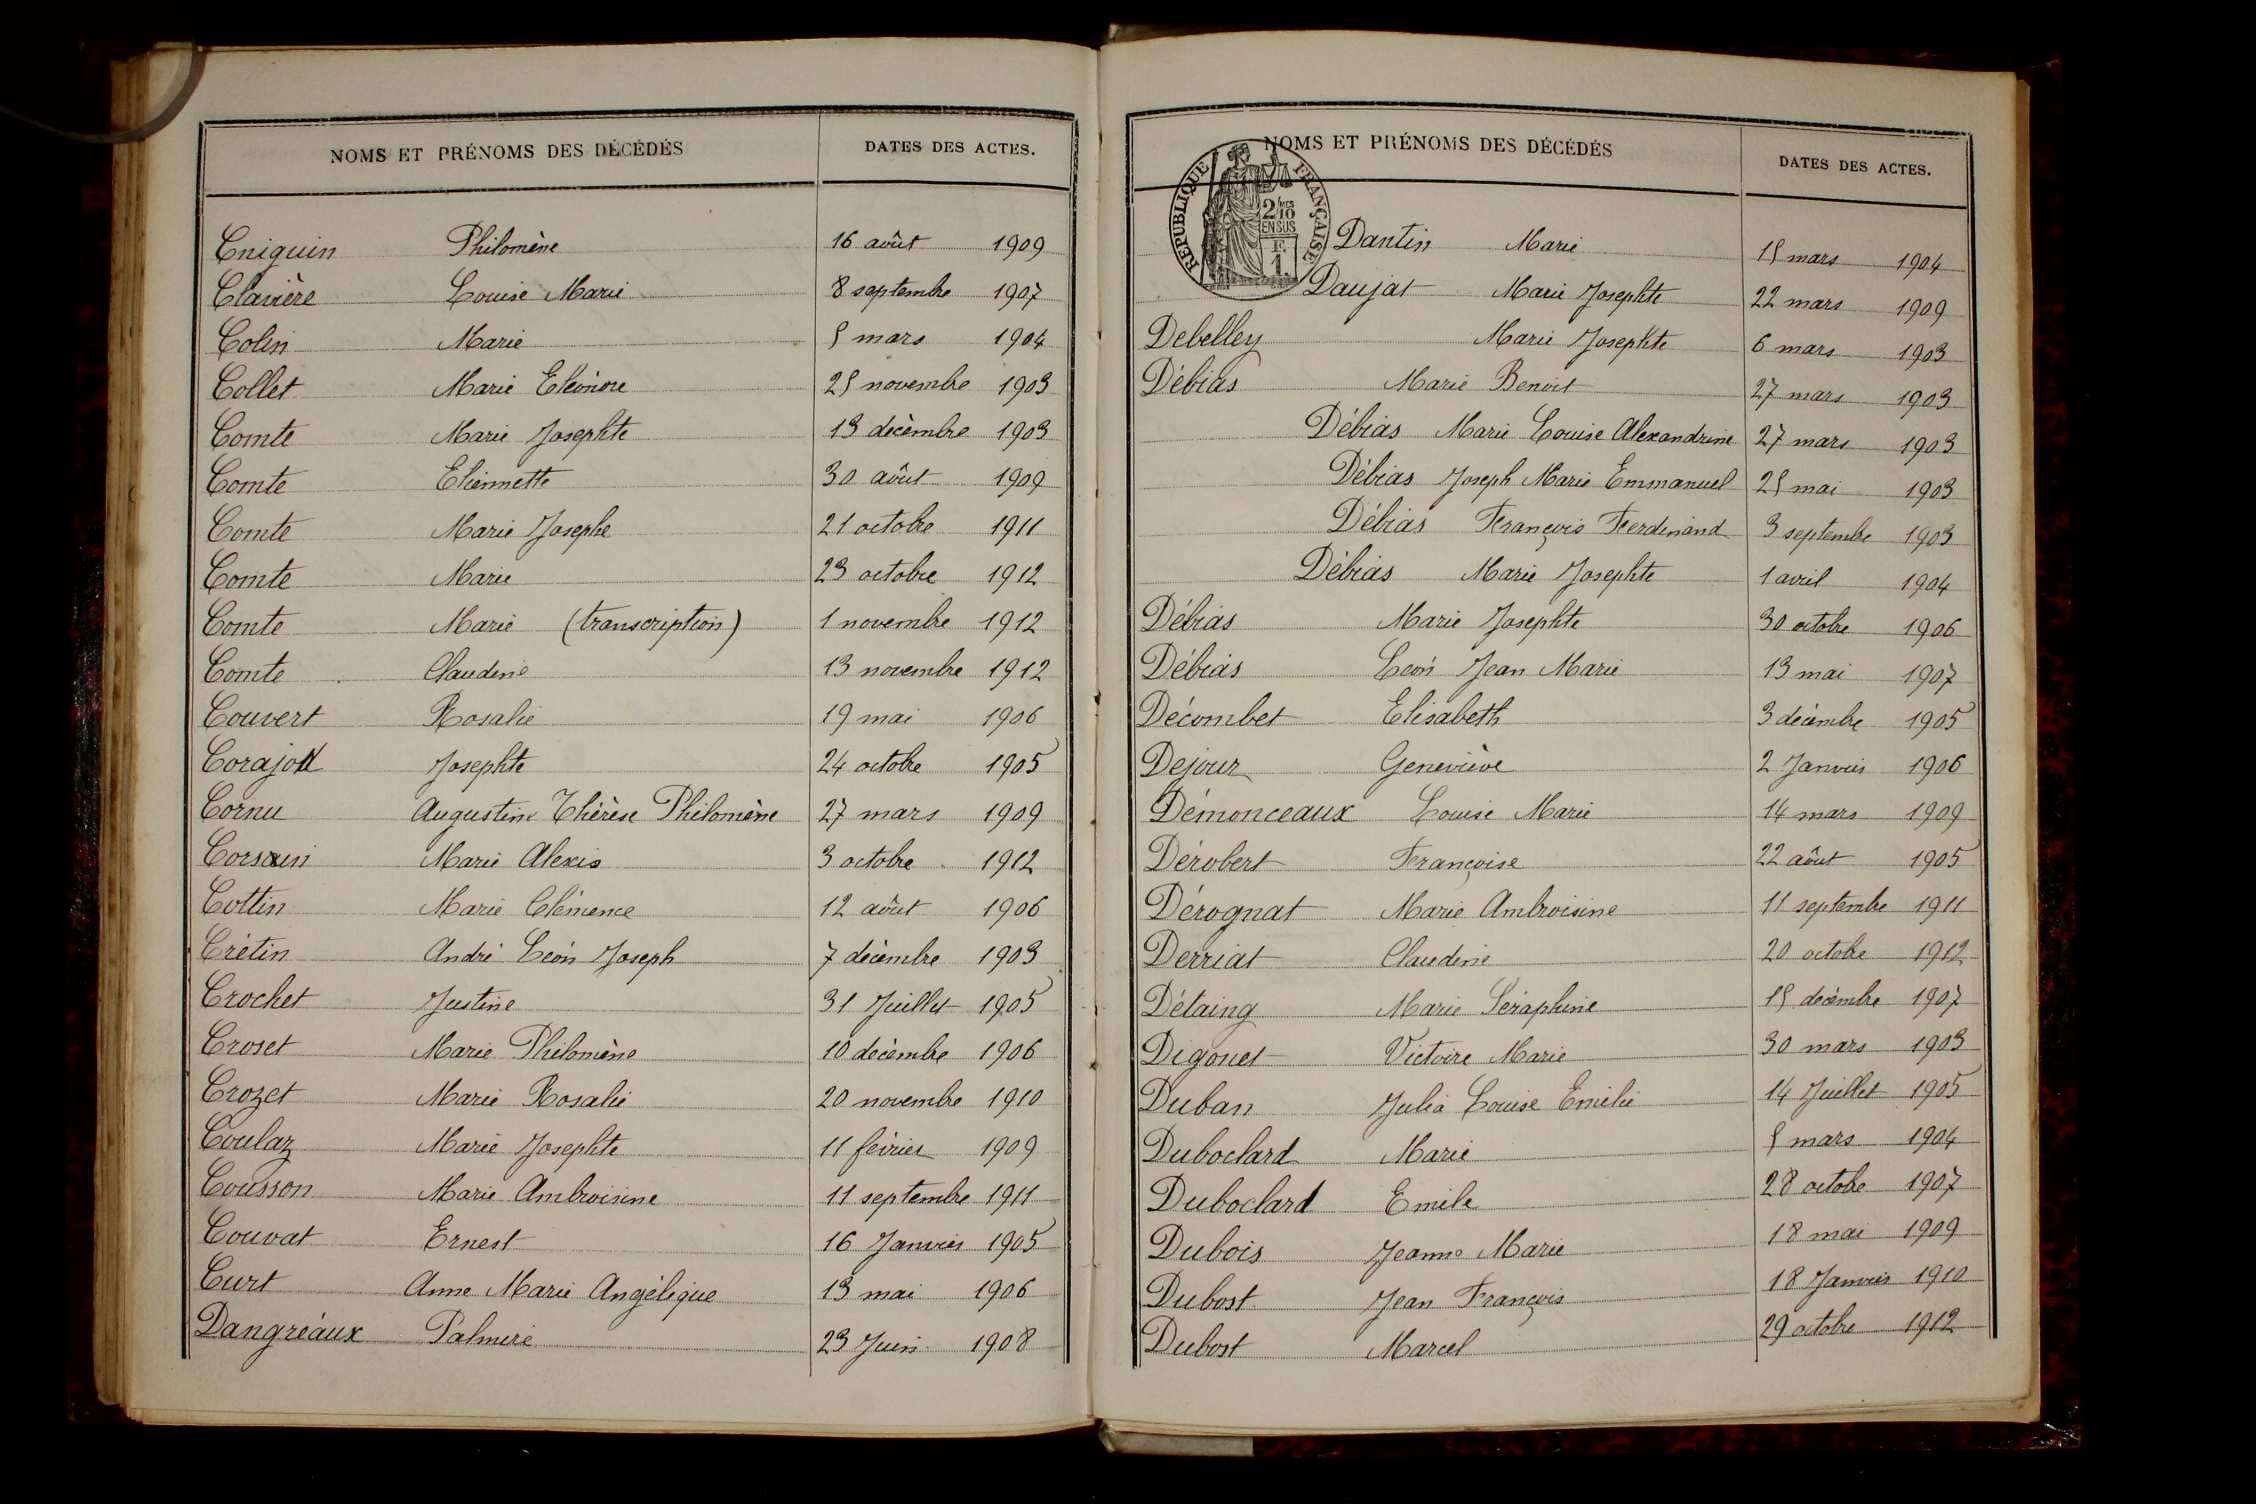 NOMS ET PRÉNOMS DES DÉCÉDÉS DATES DES ACTES.
Cniguin Philomène 16 août 1909
Clavière Louise Marie 8 septembre 1907
Colin Marie 5 mars 1904
Collet Marie Eléonore 25 novembre 1903
Comte Marie Josephte 13 décembre 1903
Comte Etiennette 30 août 1909
Comte Marie Josephe 21 octobre 1911
Comte Marie 23 octobre 1912
Comte Marie (transcription) 1 novembre 1912
Comte Claudine 13 novembre 1912
Couvert Rosalie 19 mai 1906
Corajod Josephte 24 octobre 1905
Cornu Augustine Thérèse Philomène 27 mars 1909
Corsain Marie Alexis 3 octobre 1912
Cottin Marie Clémence 12 août 1906
Crétin André Léon Joseph 7 décembre 1903
Crochet Justine 31 Juillet 1905
Croset Marie Philomène 10 décembre 1906
Crozet Marie Rosalie 20 novembre 1910
Coulaz Marie Josephte 11 février 1909
Cousson Marie Ambroisine 11 septembre 1911
Couvat Ernest 16 Janvier 1905
Curt Anne Marie Angélique 13 mai 1906
Dangréaux Palmire 23 Juin 1908
NOMS ET PRÉNOMS DES DÉCÉDÉS DATES DES ACTES.
RÉPUBLIQUE FRANÇAISE
2/10
EN SUS
F.
1.
Dantin Marie 15 mars 1904
Daujat Marie Josephte 22 mars 1909
Debelley Marie Josephte 6 mars 1903
Débias Marie Benoit 27 mars 1903
Débias Marie Louise Alexandrine 27 mars 1903
Débias Joseph Marie Emmanuel 25 mai 1903
Débias François Ferdinand 3 septembre 1903
Débias Marie Josephte 1 avril 1904
Débias Marie Josephte 30 octobre 1906
Débias Léon Jean Marie 13 mai 1907
Décombet Elisabeth 3 décembre 1905
Dejour Geneviève 2 Janvier 1906
Démonceaux Louise Marie 14 mars 1909
Dérobert Françoise 22 août 1905
Dérognat Marie Ambroisine 11 septembre 1911
Derriat Claudine 20 octobre 1912
Détaing Marie Séraphine 15 décembre 1907
Digonet Victoire Marie 30 mars 1903
Duban Julia Louise Emélie 14 Juillet 1905
Duboclard Marie 5 mars 1904
Duboclard Emile 28 octobre 1907
Dubois Jeanne Marie 18 mai 1909
Dubost Jean François 18 Janvier 1910
Dubost Marcel 29 octobre 1912